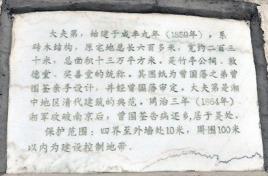 大夫第，始建于咸丰九年（1859年），系
砖木结构，原宅地总长六百多米，宽约二百三
十米，总面积十三万平方米，是竹亭公祠、敦
德堂、奖善堂的统称，其图纸为曾国藩之弟曾
国荃亲手设计，并经曾国藩审定，大夫第是湘
中地区清代建筑的典范。同治三年（1864年）
湘军攻破南京后，曾国荃告病还乡，居于是处。
保护范围：四界至外墙处10米，周围100米
以内为建设控制地带。